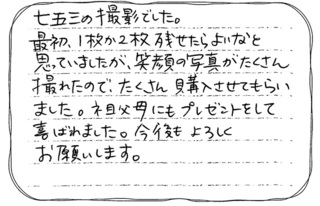 七五三の撮影でした。
最初、1枚か2枚残せたらよいなと
思っていましたが、笑顔の写真がたくさん
撮れたので、たくさん購入させてもらい
ました。祖父母にもプレゼントをして
喜ばれました。今後もよろしく
お願いします。